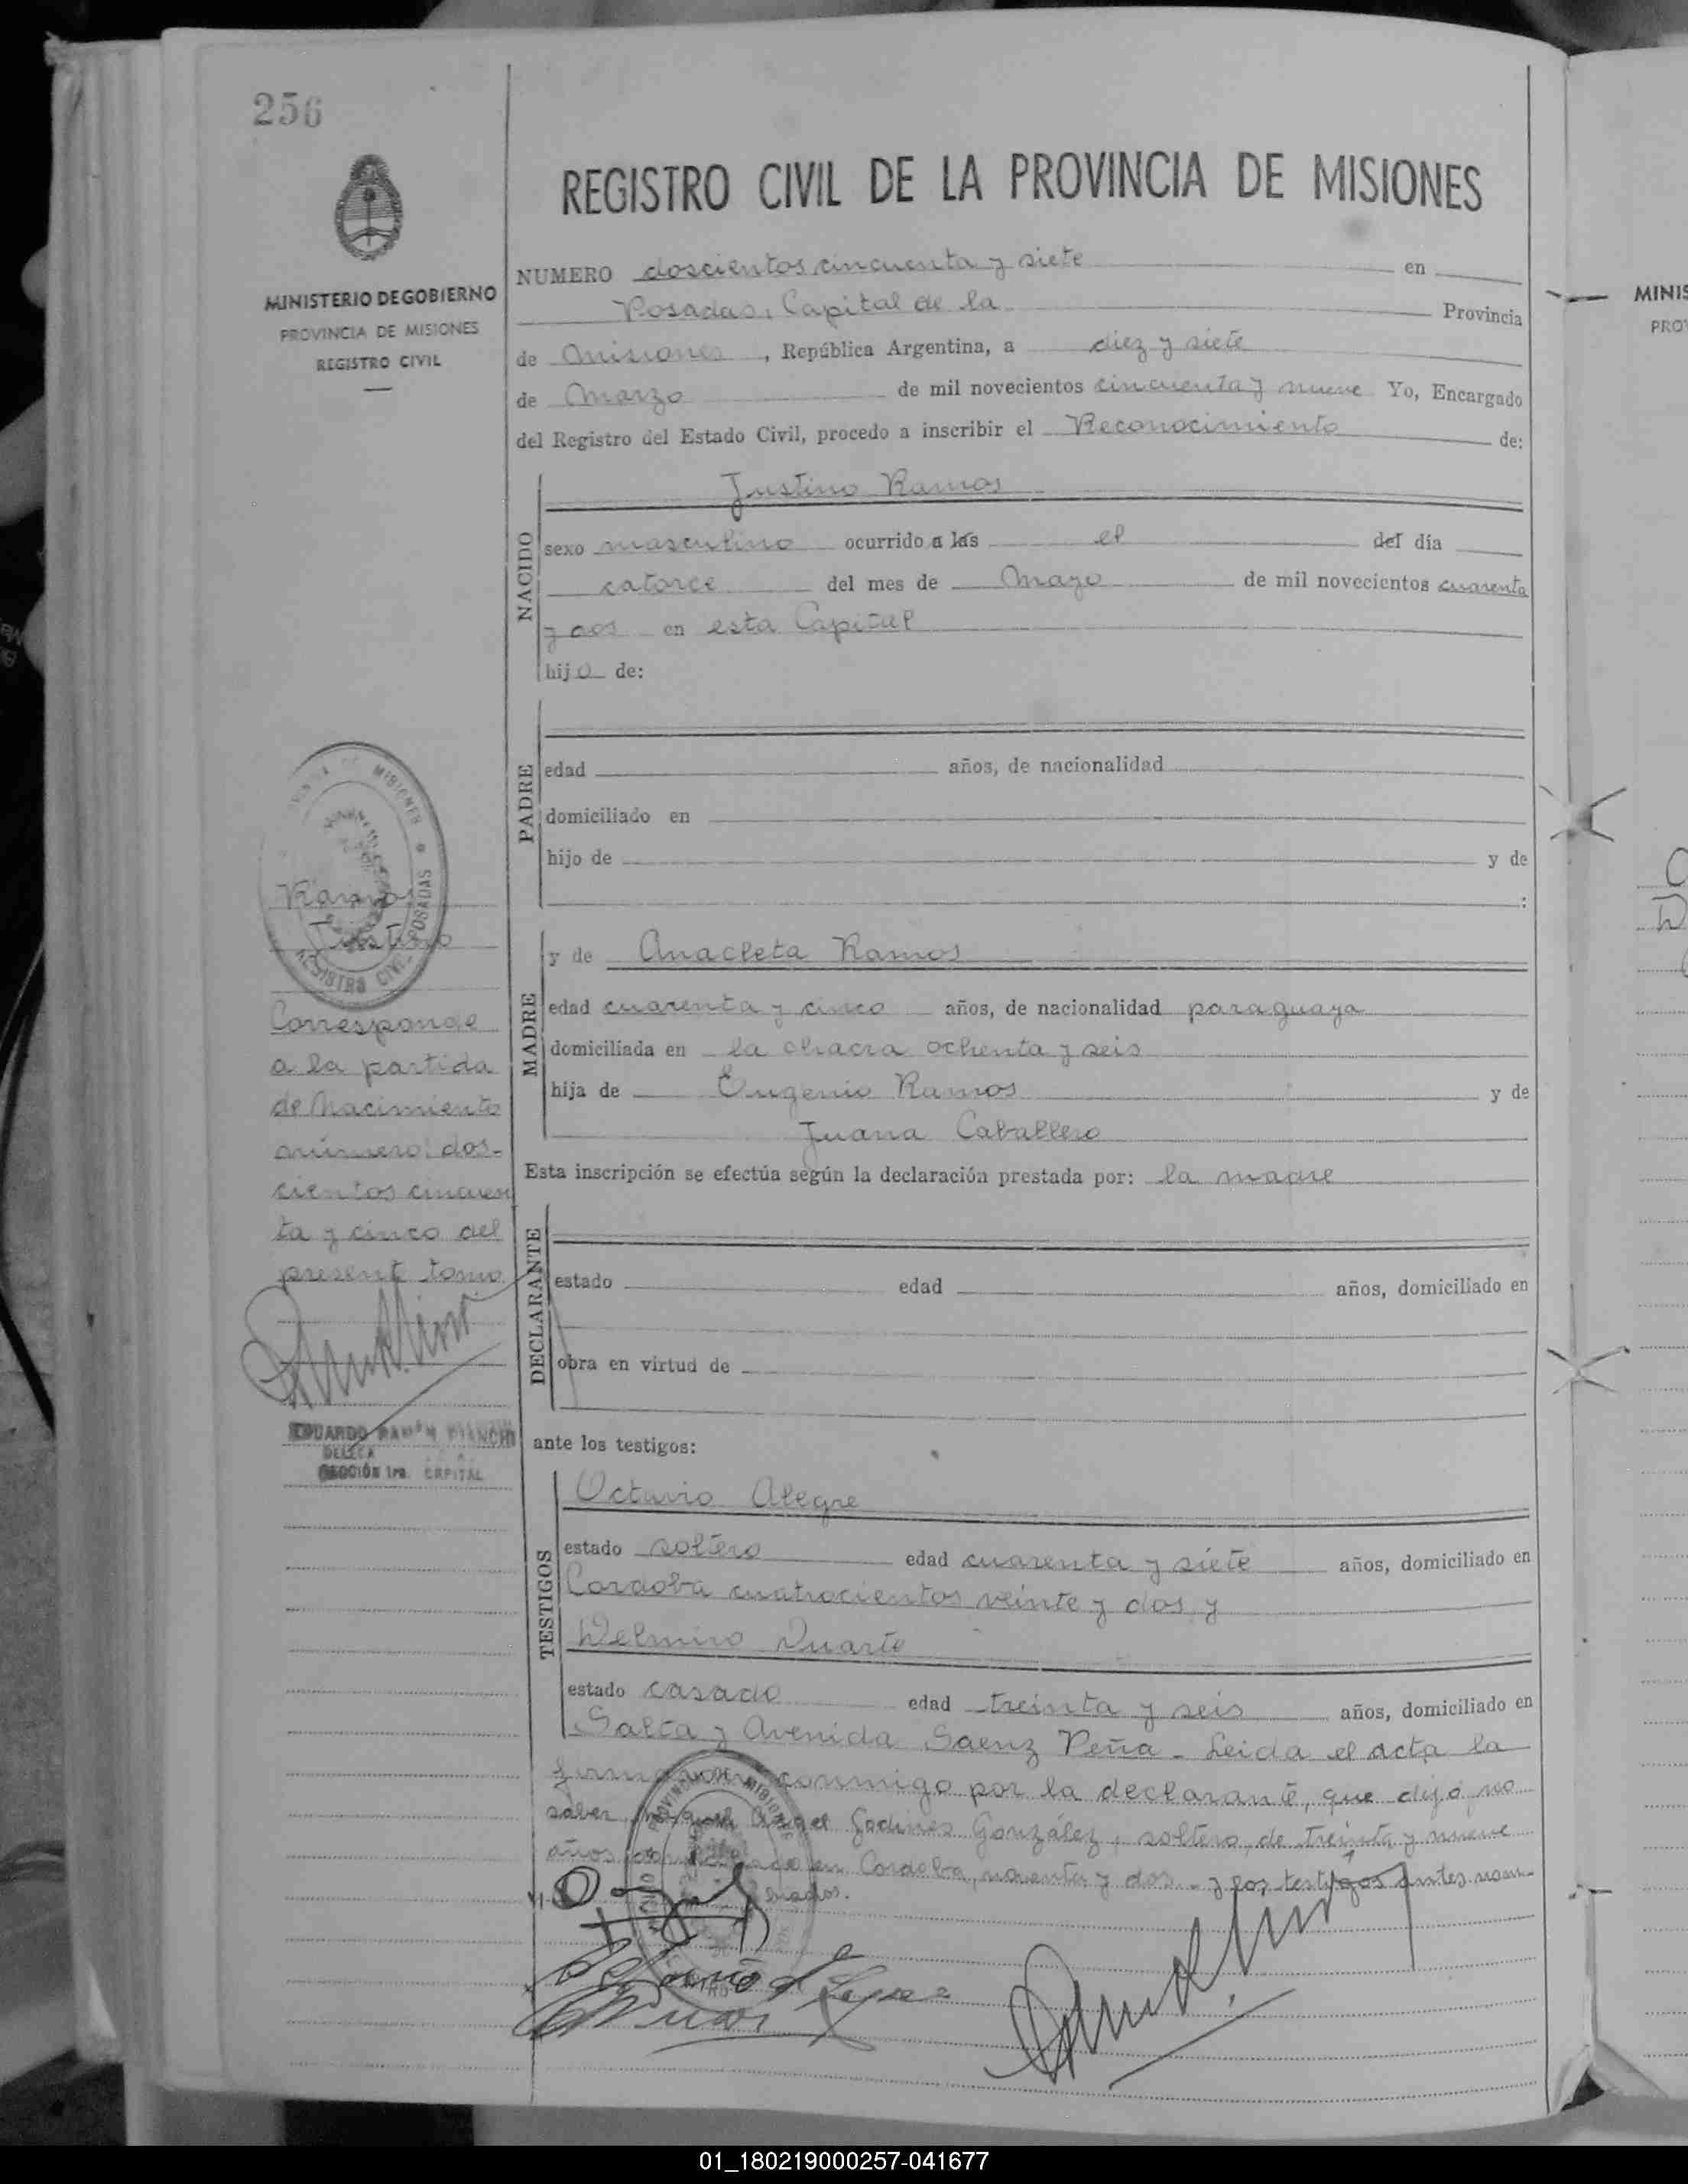 256
MINISTERIO DE GOBIERNO
PROVINCIA DE MISIONES
REGISTRO CIVIL
REGISTRO CIVIL DE LA PROVINCIA DE MISIONES
NUMERO doscientos cincuenta y siete en
Posadas, Capital de la Provincia
de Misiones, República Argentina, a diez y siete
de Marzo de mil novecientos cincuenta y nueve Yo, Encargado
del Registro del Estado Civil, procedo a inscribir el Reconocimiento de:
NACIDO
Justino Ramos
sexo masculino ocurrido a las el del día
catorce del mes de Mayo de mil novecientos cuarenta
y dos en esta Capital
hijo de:
PADRE
edad años, de nacionalidad
domiciliado en
hijo de y de
:
MADRE
y de Anacleta Ramos
edad cuarenta y cinco años, de nacionalidad paraguaya
domiciliada en la chacra ochenta y seis
hija de Eugenio Ramos y de
Juana Caballero
Esta inscripción se efectúa según la declaración prestada por: la madre
DECLARANTE
estado edad años, domiciliado en
obra en virtud de
ante los testigos:
TESTIGOS
Octavio Alegre
estado soltero edad cuarenta y siete años, domiciliado en
Cordoba cuatrocientos veinte y dos y
Delmiro Duarte
estado casado edad treinta y seis años, domiciliado en
Salta y Avenida Saenz Peña - Leida el acta la
conmigo por la declarante, que dijo no
saber, Angel Godines González, soltero, de treinta y nueve
años en Cordoba, noventa y dos - y los testigos antes nom-
brados.
Ramos
Justino
Corresponde
a la partida
de Nacimiento
número: dos-
cientos cincuen
ta y cinco del
present tomo
EDUARDO RAMÓN BIANCHI
SECCIÓN 1ra. CAPITAL
MISIONES
POSADAS
REGISTRO CIVIL
PROVINCIA DE MISIONES
MINIS
PRO
01_180219000257-041677